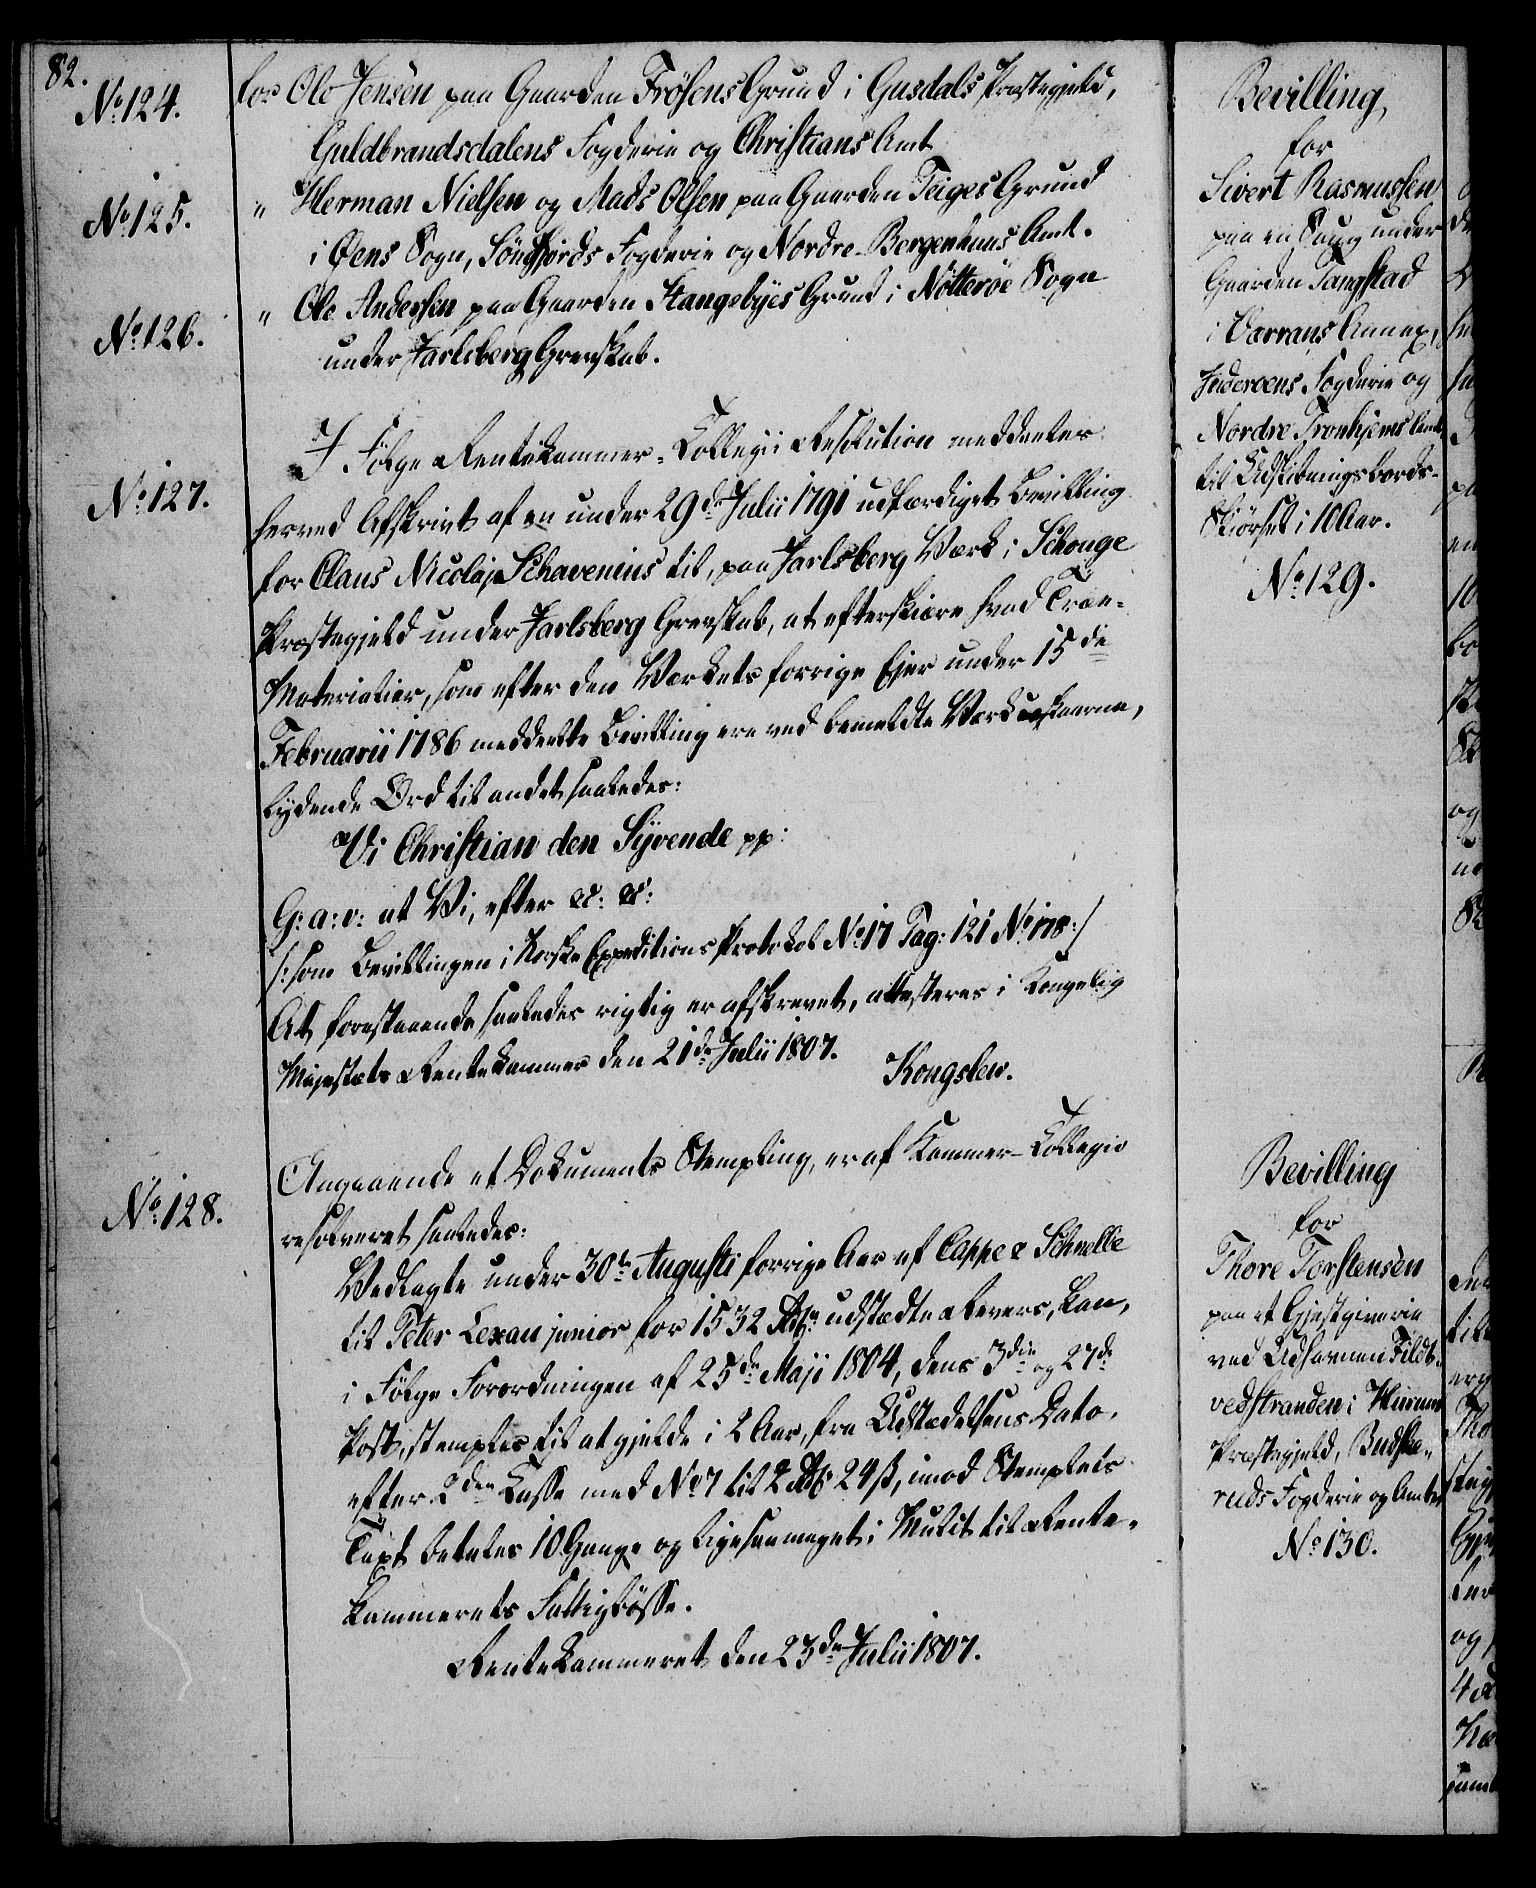 82.
No. 124.
for Ole Jensen paa Gaarden Frösens Grund i Gusdals Præstegjeld,
Guldbrandsdalens Fogderie og Christians Amt
No. 125.
" Herman Nielsen og Mads Olsen paa Gaarden Teiges Grund
i Öens Sogn, Söndfjords Fogderie og Nordre Bergenhuus Amt.
No. 126.
" Ole Andersen paa Gaarden Stangebyes Grund i Nötteröe Sogn
under Jarlsberg Grevskab.
No. 127.
I Fölge Rentekammer-Collegii Resolution meddeeles
herved Afskrivt af en under 29de Julii 1791 udfærdiget Bevilling
for Claus Nicolaj Schavenius til, paa Jarlsberg Værk i Schouge
Præstegjeld under Jarlsberg Grevskab, at efterskiære hvad Træe-
Materialier, som efter den Værkets forrige Ejer under 15de
Februarii 1786 meddeelte Bevilling ere ved bemeldte Værk uskaarne,
lydende Ord til andet saaledes:
Vi Christian den Syvende pp:
G: a: v: at Vi, efter &: &:
/: som Bevillingen i Norske Expeditions Protokol No. 17 Pag: 121 No. 178 :/
At forestaaende saaledes rigtig er afskrevet, attesteres i Kongelig
Majestæts Rentekammer den 21de Julii 1807.
Kongslew.
No. 128.
Angaaende et Dokuments Stempling, er af Kammer-Collegio
resolveret saaledes:
Vedlagte under 30te Augusti forrige Aar af Cappe & Schnelle
til Peter Lexau junior for 1532 Rdlr. udstædte Revers, kan,
i Fölge Forordningen af 25de Maji 1804, dens 3die og 27de
Post, stemples til at gjelde i 2 Aar, fra Udstædelsens Dato,
efter 2den Classe med No. 7 til 2 Rdlr. 24 ß, imod Stemplets
Taxt betales 10 Gange og ligesaameget i Mulct til Rente-
kammerets Fattigbösse.
Rentekammeret den 23de Julii 1807.
Bevilling,
for
Sivert Rasmussen
paa en Saug under
Gaarden Tangstad
i Værrans Annex,
Inderöens Fogderie og
Nordre Tronhjems Amt
til Udskibningsbords-
Skiörsel i 10 Aar.
No. 129.
Bevilling
for
Thore Torstensen
paa et Gjestgiverie
ved Udhavnen Fildt-
vedstranden i Hurums
Præstegjeld, Buske-
ruds Fogderie og Amt
No. 130.